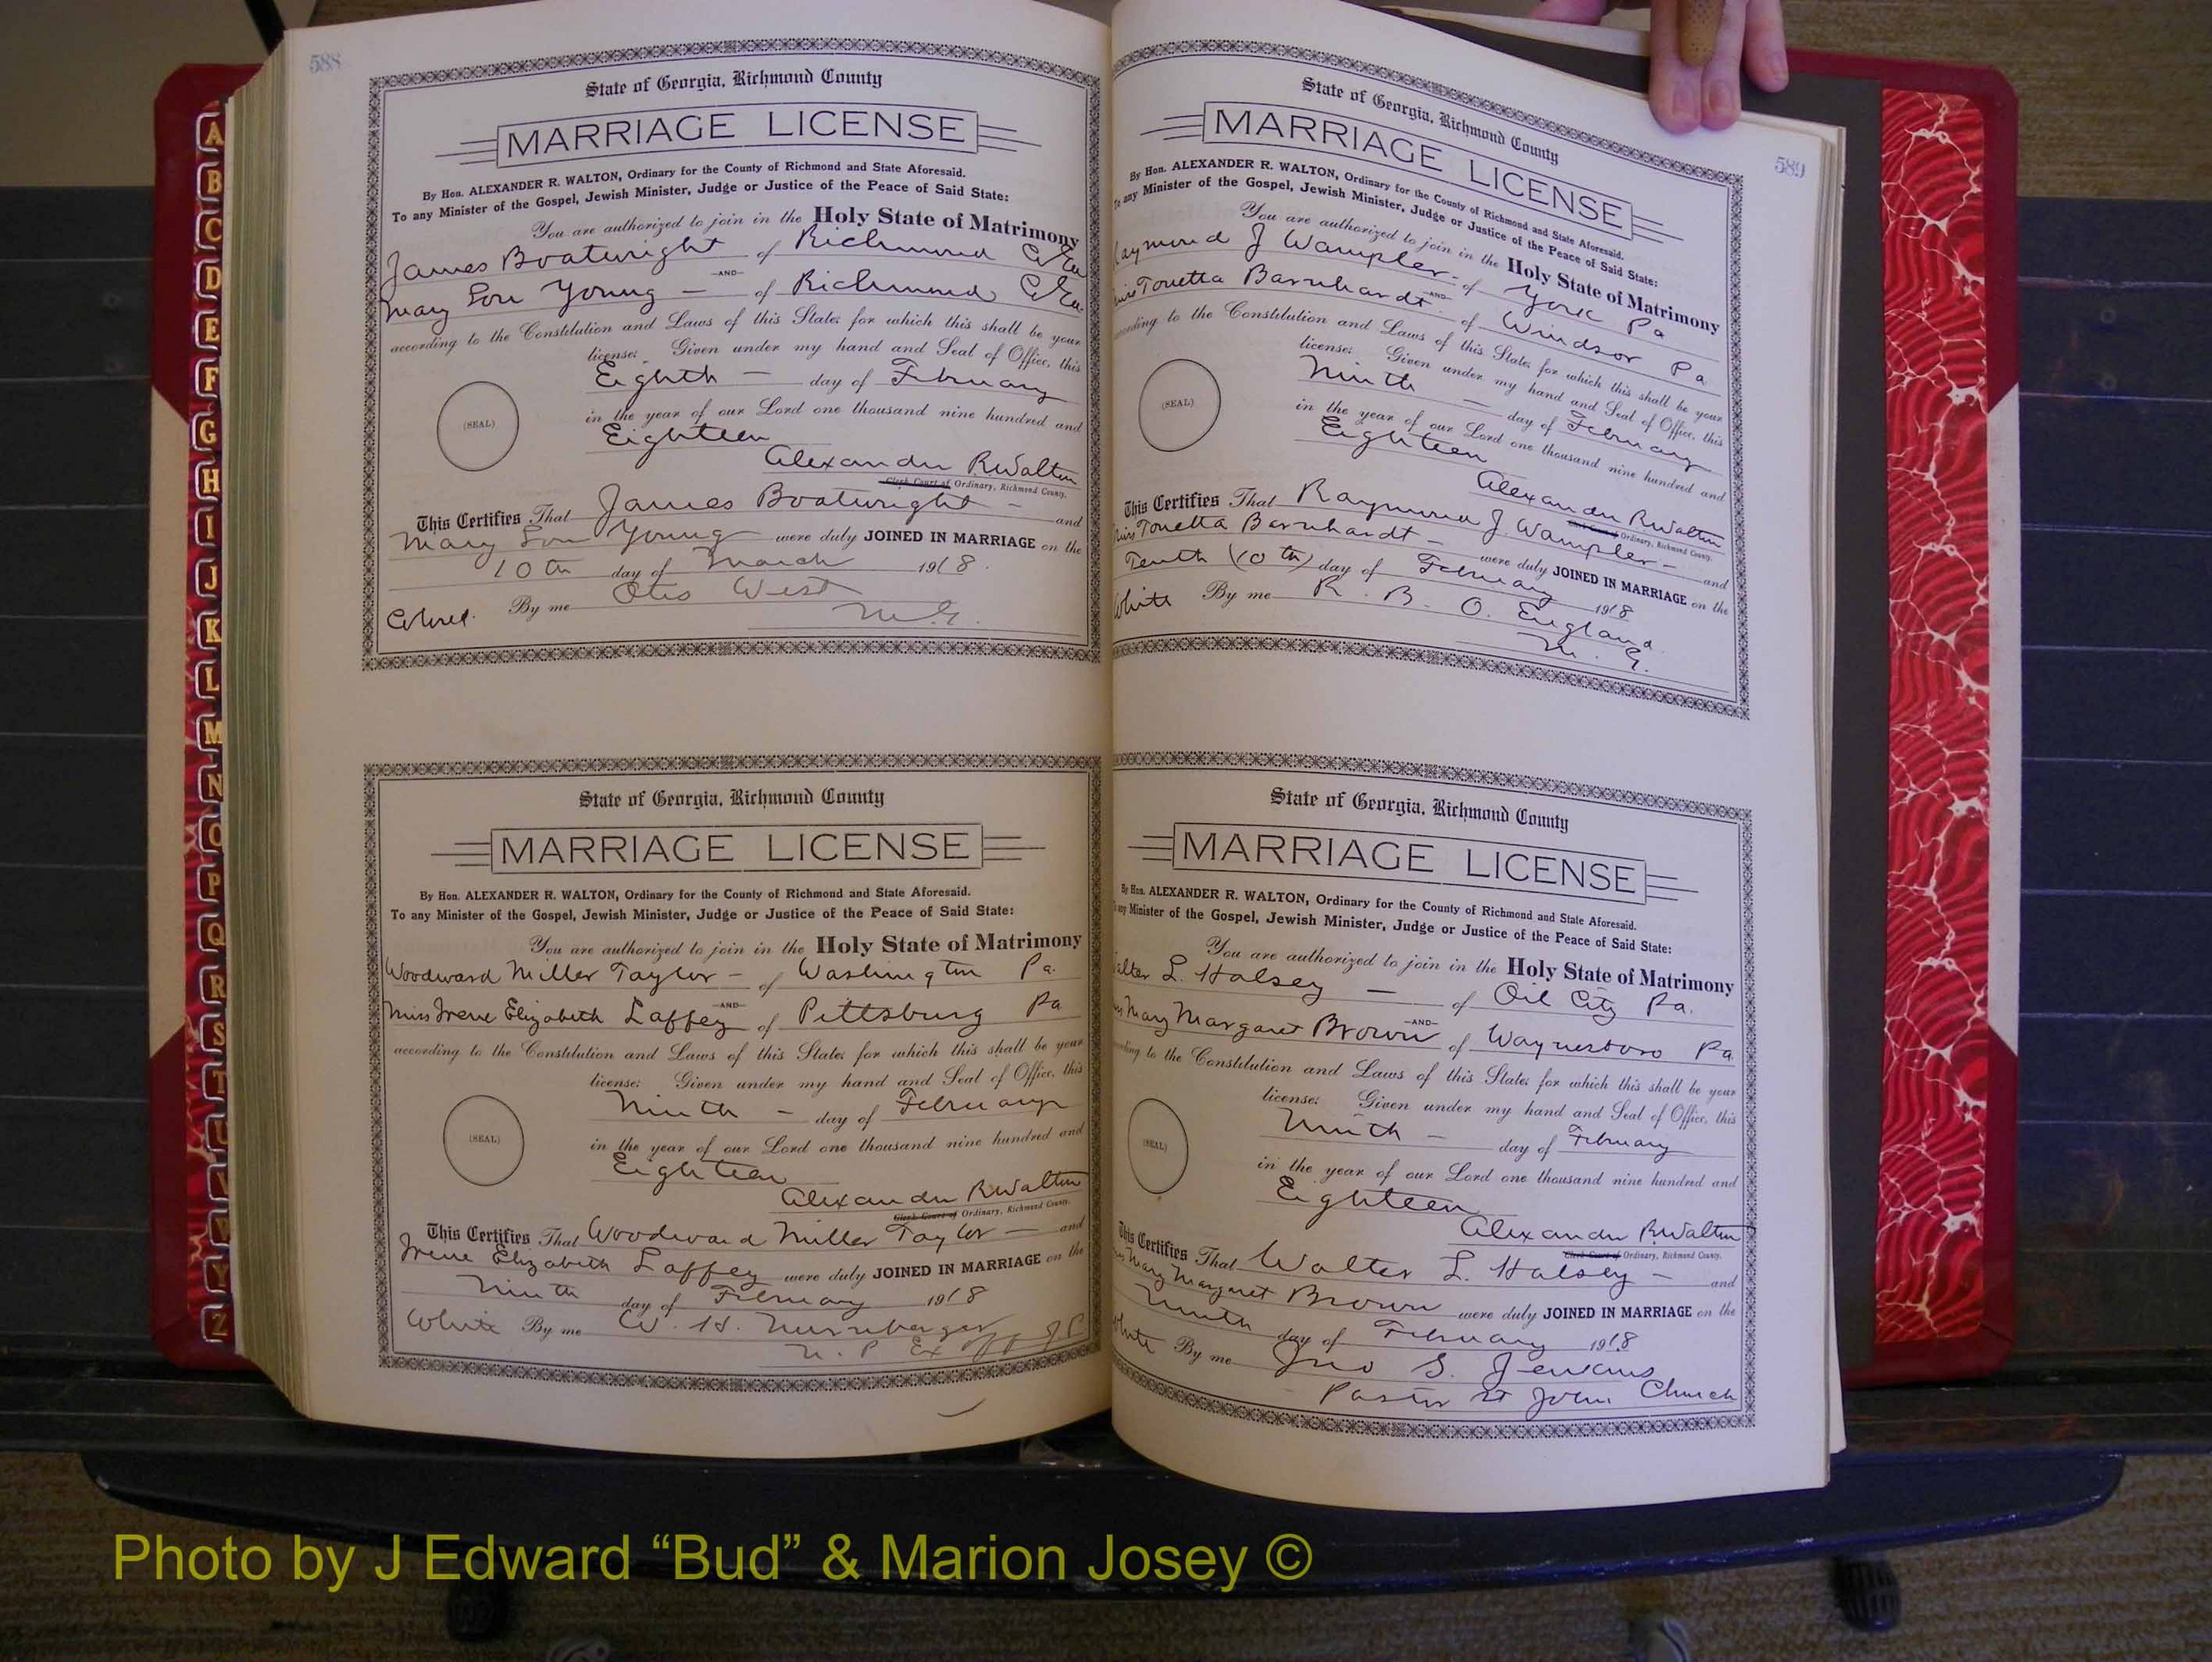 588
State of Georgia, Richmond County
MARRIAGE LICENSE
By Hon. ALEXANDER R. WALTON, Ordinary for the County of Richmond and State Aforesaid.
To any Minister of the Gospel, Jewish Minister, Judge or Justice of the Peace of Said State:
You are authorized to join in the Holy State of Matrimony
James Boatwright of Richmond Co Ga
-AND-
Mary Lou Young - of Richmond Co Ga
according to the Constitution and Laws of this State; for which this shall be your
license: Given under my hand and Seal of Office, this
Eighth - day of February
in the year of our Lord one thousand nine hundred and
(SEAL)
Eighteen
Alexander R Walton
Clerk Court of Ordinary, Richmond County.
This Certifies That James Boatwright - and
Mary Lou Young were duly JOINED IN MARRIAGE on the
10th day of March 1918.
Colored. By me Otis West
M.G.
State of Georgia, Richmond County
MARRIAGE LICENSE
By Hon. ALEXANDER R. WALTON, Ordinary for the County of Richmond and State Aforesaid.
To any Minister of the Gospel, Jewish Minister, Judge or Justice of the Peace of Said State:
You are authorized to join in the Holy State of Matrimony
Woodward Miller Taylor - of Washington Pa.
-AND-
Miss Irene Elizabeth Laffey of Pittsburg Pa
according to the Constitution and Laws of this State; for which this shall be your
license: Given under my hand and Seal of Office, this
Ninth - day of February
(SEAL)
in the year of our Lord one thousand nine hundred and
Eighteen
Alexander R Walton
Clerk Court of Ordinary, Richmond County.
This Certifies That Woodward Miller Taylor - and
Irene Elizabeth Laffey were duly JOINED IN MARRIAGE on the
Ninth day of February 1918
White By me W. H. Nurnberger
N. P. Ex Off J P
589
State of Georgia, Richmond County
MARRIAGE LICENSE
By Hon. ALEXANDER R. WALTON, Ordinary for the County of Richmond and State Aforesaid.
To any Minister of the Gospel, Jewish Minister, Judge or Justice of the Peace of Said State:
You are authorized to join in the Holy State of Matrimony
Raymond J Wampler - of York Pa
-AND-
Miss Tonetta Barnhardt of Windsor Pa
according to the Constitution and Laws of this State; for which this shall be your
license: Given under my hand and Seal of Office, this
Ninth - day of February
(SEAL)
in the year of our Lord one thousand nine hundred and
Eighteen
Alexander R Walton
Clerk Court of Ordinary, Richmond County.
This Certifies That Raymond J. Wampler - and
Miss Tonetta Barnhardt - were duly JOINED IN MARRIAGE on the
Tenth (10th) day of February 1918
White By me R. B. O. England
M. G.
State of Georgia, Richmond County
MARRIAGE LICENSE
By Hon. ALEXANDER R. WALTON, Ordinary for the County of Richmond and State Aforesaid.
any Minister of the Gospel, Jewish Minister, Judge or Justice of the Peace of Said State:
You are authorized to join in the Holy State of Matrimony
alter L. Halsey - of Oil City Pa.
-AND-
Mary Margaret Brown of Waynesboro Pa
according to the Constitution and Laws of this State; for which this shall be your
license: Given under my hand and Seal of Office, this
Ninth - day of February
(SEAL)
in the year of our Lord one thousand nine hundred and
Eighteen
Alexander R Walton
Clerk Court of Ordinary, Richmond County.
This Certifies That Walter L. Halsey - and
Mary Margaret Brown were duly JOINED IN MARRIAGE on the
Ninth day of February 1918
White By me Jno S. Jenkins
Pastor St John Church
A
B
C
D
E
F
G
H
I
J
K
L
M
N
O
P
Q
R
S
T
U
V
W
Y
Z
Photo by J Edward “Bud” & Marion Josey ©